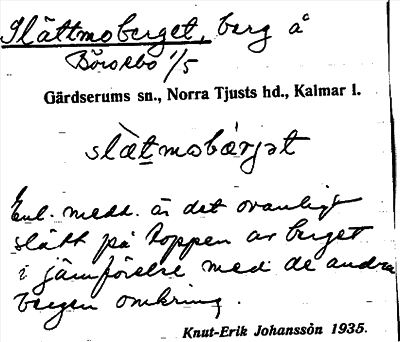 Slättmoberget, berg å
Börsebo 1/5
Gärdserums sn., Norra Tjusts hd., Kalmar l.
slä̀t̲mobä́rjət
Enl. medd. är det ovanligt
slätt på toppen av berget
i jämförelse med de andra
bergen omkring.
Knut-Erik Johansson 1935.